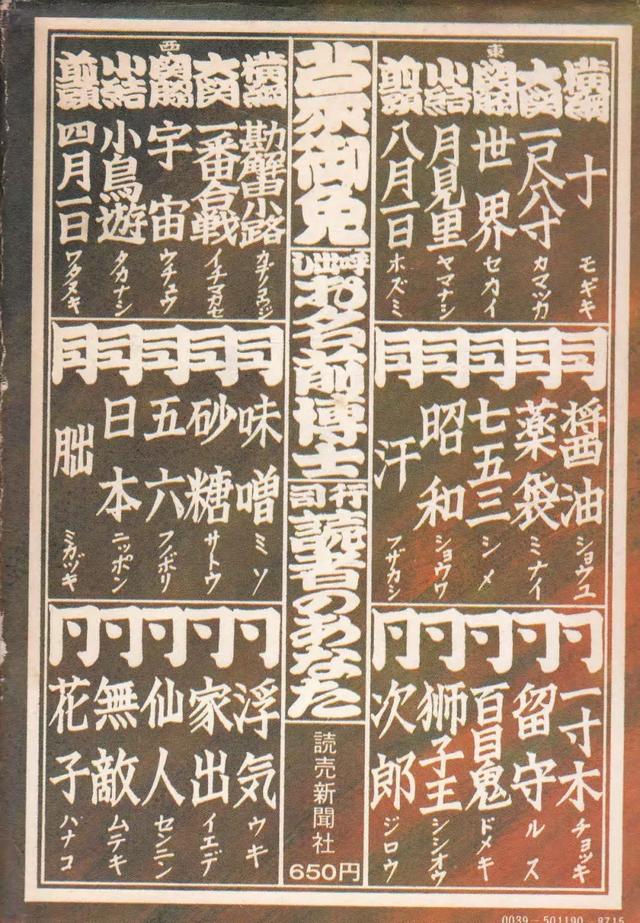 東
横綱 十 モギキ
大関 一尺八寸 カマツカ
関脇 世界 セカイ
小結 月見里 ヤマナシ
前頭 八月一日 ホズミ
同 醤油 ショウユ
同 薬袋 ミナイ
同 七五三 シメ
同 昭和 ショウワ
同 汗 フザカシ
同 一寸木 チョッキ
同 留守 ルス
同 百目鬼 ドメキ
同 獅子王 シシオウ
同 次郎 ジロウ
御免
呼出し お名前博士
行司 読者のあなた
読売新聞社
650円
西
横綱 勘解由小路
大関 一番合戦 イチマカセ
関脇 宇宙 ウチュウ
小結 小鳥遊 タカナシ
前頭 四月一日 ワタヌキ
同 味噌 ミソ
同 砂糖 サトウ
同 五六 フノボリ
同 日本 ニッポン
同 朏 ミカヅキ
同 浮気 ウキ
同 家出 イエデ
同 仙人 センニン
同 無敵 ムテキ
同 花子 ハナコ
0039-501190-8715